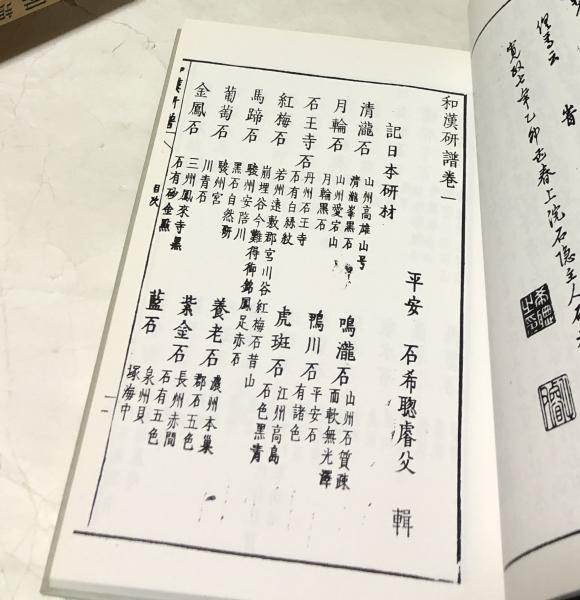 寛政七年乙卯孟春上浣石隠主人
和漢研譜卷一
平安 石希聰睿父 輯
記日本研材
清瀧石 山州高雄山号
清瀧峯黒石
鳴瀧石 山州石質疎
而軟無光澤
月輪石 山州愛宕山
月輪黒石
鴨川石 平安石
有諸色
石王寺石 丹州石王寺
石有白絲紋
虎斑石 江州高島
石色黒青
紅梅石 若州遠敷郡宮川谷紅梅石昔山
崩埋谷今難得御鶴鳳足赤石
馬蹄石 駿州安陪川
黒石自然研
養老石 濃州本巣
郡石五色
葡萄石 駿州宮
川青石
紫金石 長州赤間
石有五色
金鳳石 三州鳳來寺黒
石有砂金點
藍石 泉州貝
塚海中
目次